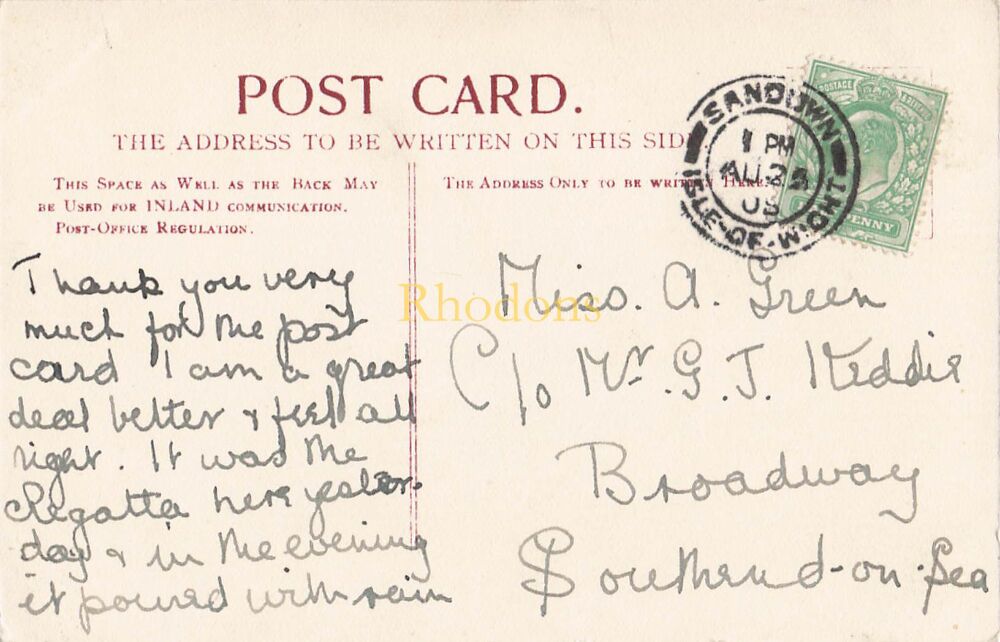 POST CARD.
THE ADDRESS TO BE WRITTEN ON THIS SIDE
THIS SPACE AS WELL AS THE BACK MAY
BE USED FOR INLAND COMMUNICATION.
POST-OFFICE REGULATION.
THE ADDRESS ONLY TO BE WRITTEN HERE.
SANDOWN
1 PM
AU 25
ISLE-OF-WIGHT
POSTAGE
PENNY
Thank you very
much for the post
card I am a great
deal better & feel all
right. It was the
Regatta here yester-
day & in the evening
it poured with rain
Miss. A. Green
C/o Mr. G. J. Keddie
Broadway
Southend-on-Sea
Rhodons